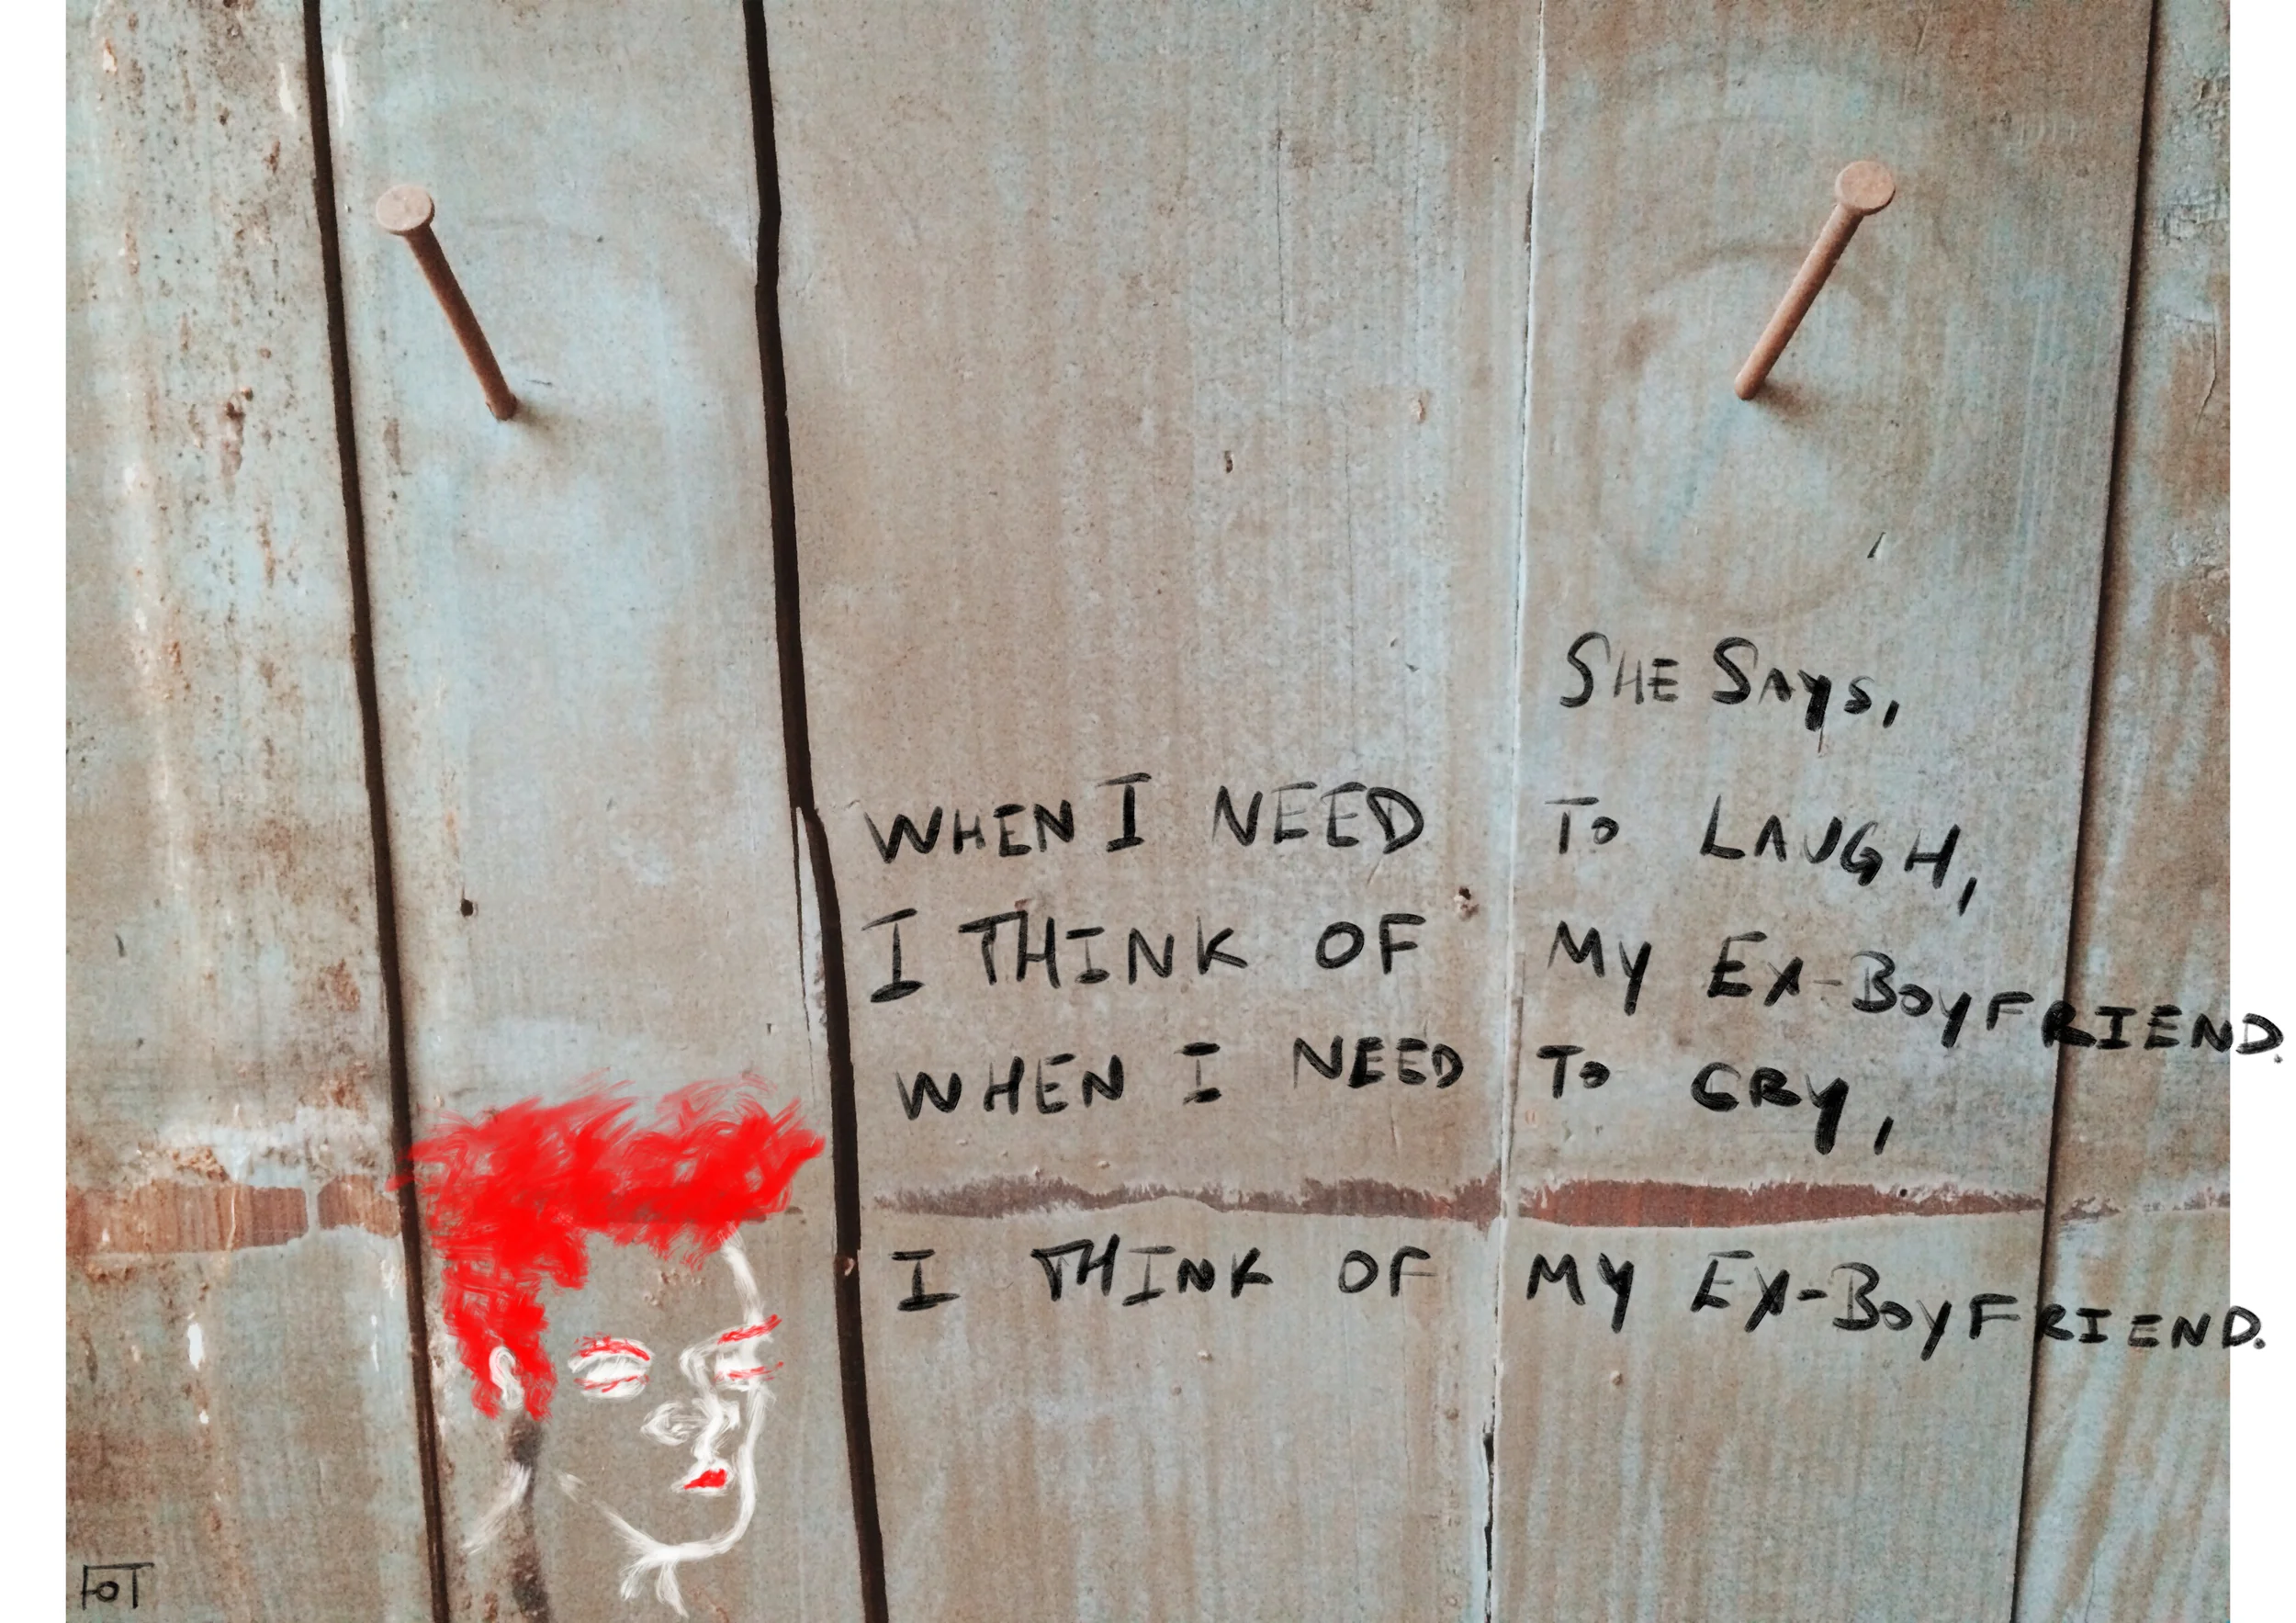 SHE SAYS,
WHEN I NEED TO LAUGH,
I THINK OF MY EX-BOYFRIEND.
WHEN I NEED TO CRY,
I THINK OF MY EX-BOYFRIEND.